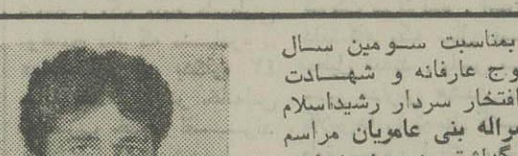 بمناسبت سومین سال
وج عارفانه و شهادت
افتخار سردار رشیداسلام
براله بنی عامویان مراسم